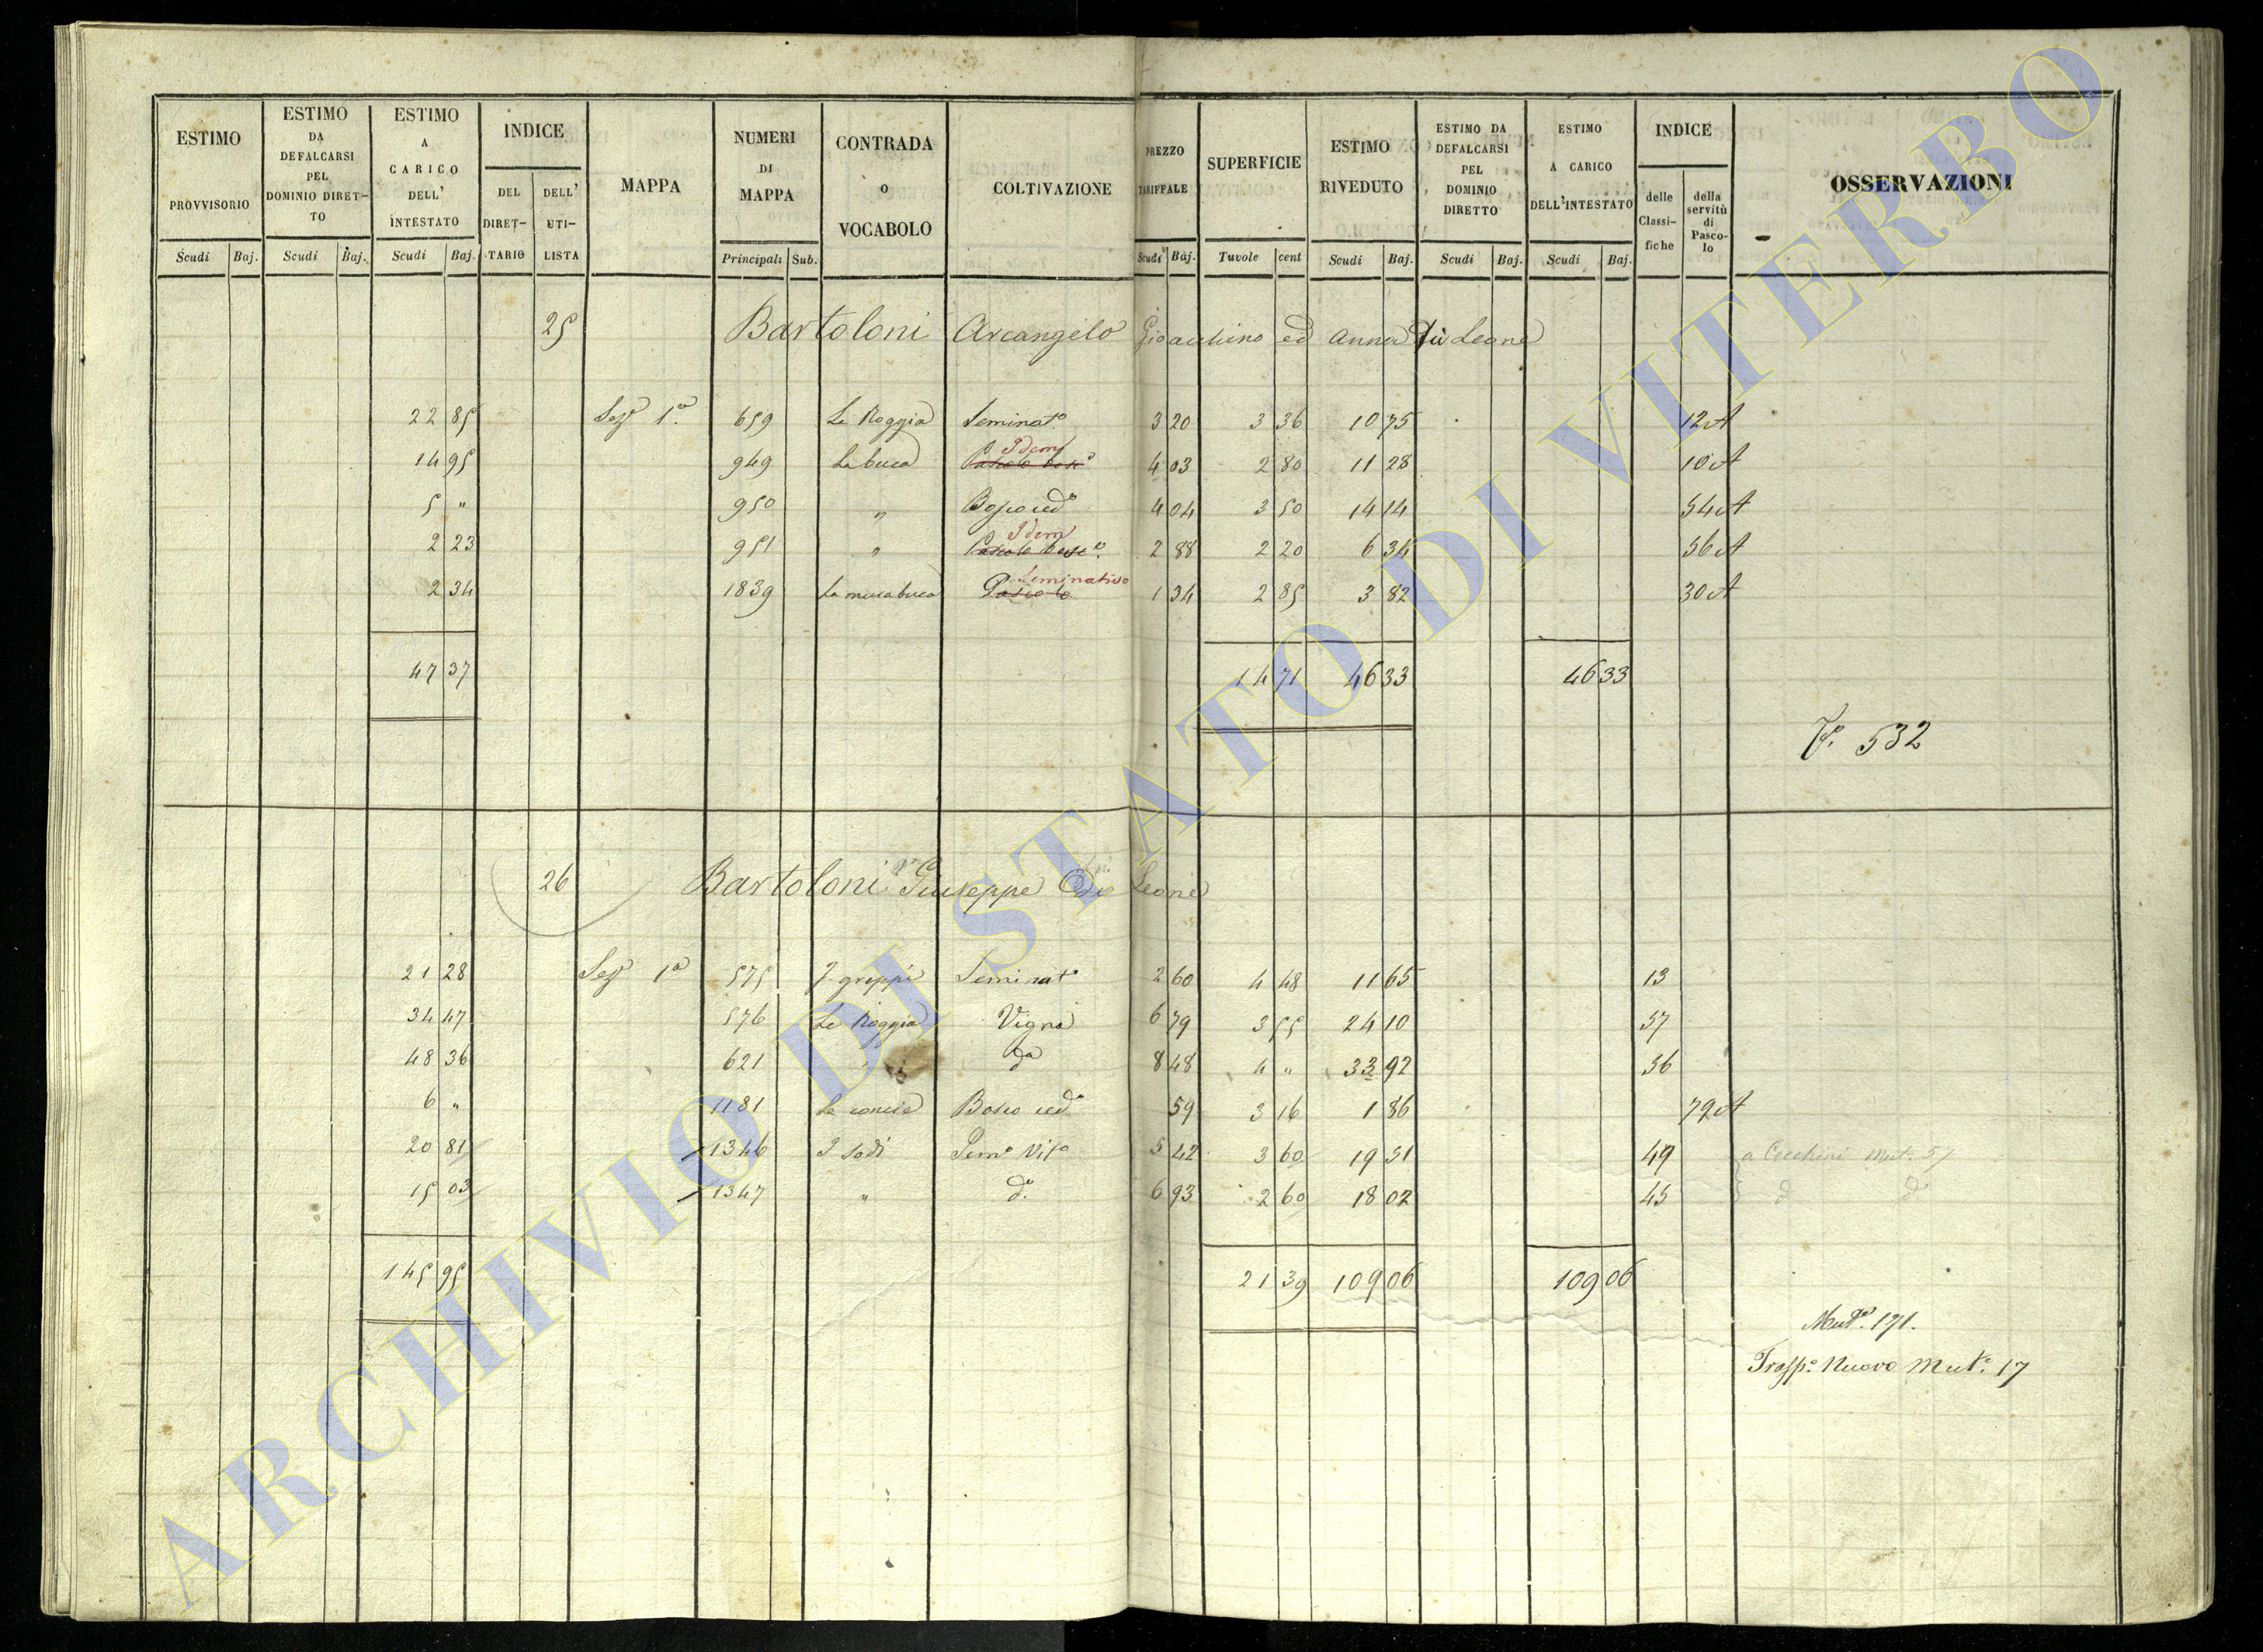 ESTIMO PROVVISORIO Scudi Baj.
ESTIMO DA DEFALCARSI PEL DOMINIO DIRETTO Scudi Baj.
ESTIMO A CARICO DELL' INTESTATO Scudi Baj.
INDICE DEL DIRETTARIO DELL' UTILISTA
MAPPA
NUMERI DI MAPPA Principali Sub.
CONTRADA O VOCABOLO
COLTIVAZIONE
PREZZO TARIFFALE Scudi Baj.
SUPERFICIE Tavole cent
ESTIMO RIVEDUTO Scudi Baj.
ESTIMO DA DEFALCARSI PEL DOMINIO DIRETTO Scudi Baj.
ESTIMO A CARICO DELL'INTESTATO Scudi Baj.
INDICE delle Classifiche della servitù di Pascolo
OSSERVAZIONI
25 Bartoloni Arcangelo Gioacchino ed Anna fu Leone
22 85 Sezе 1a 659 Le Roggia Seminato 3 20 3 36 10 75 12 A
14 95 949 La buca Pascolo bosco Idem 4 03 2 80 11 28 10 A
5 " 950 " Bosco cedo 4 04 3 50 14 14 54 A
2 23 951 " Pascolo bosco Idem 2 88 2 20 6 34 56 A
2 34 1839 La murabuca Pascolo Seminativo 1 34 2 85 3 82 30 A
47 37 14 71 46 33 46 33
Vo. 532
26 Bartoloni Giuseppe di Leone
21 28 Sezе 1a 575 I greppi Seminato 2 60 4 48 11 65 13
34 47 576 Le Roggia Vigna 6 79 3 55 24 10 37
48 36 621 " da 8 48 4 " 33 92 36
6 " 1181 Le concie Bosco cedo 59 3 16 1 86 79 A
20 81 1346 I sodi Semo Vito 5 42 3 60 19 51 49 a Cecchini Mut. 57
15 03 1347 " do. 6 93 2 60 18 02 45 d d
145 95 21 39 109 06 109 06
Muta. 171.
Trasspo. Nuovo Muta. 17
ARCHIVIO DI STATO DI VITERBO